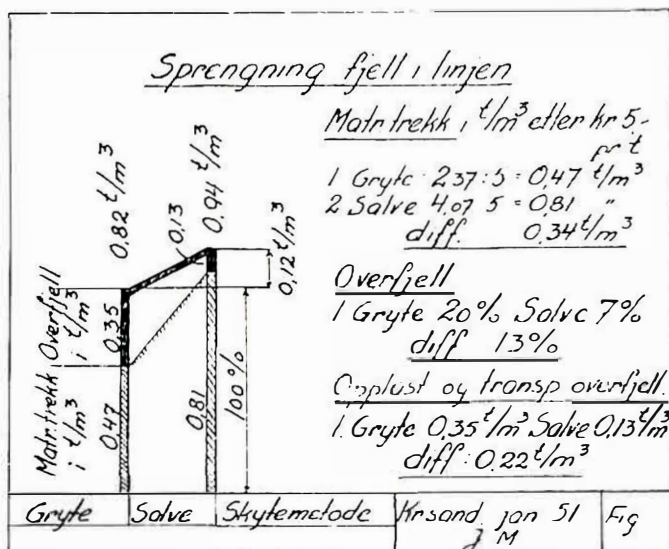 Sprengning fjell i linjen
Matr.trekk i t/m³ etter kr 5.-
pr t
1 Gryte 2.37:5 = 0,47 t/m³
2 Salve 4,07 5 = 0,81 "
diff. 0,34 t/m³
Overfjell
1 Gryte 20% Salve 7%
diff 13%
Opplast og transp overfjell.
1. Gryte 0,35 t/m³ Salve 0,13 t/m³
diff: 0,22 t/m³
0,82 t/m³
0,13
0,94 t/m³
0,12 t/m³
Overfjell i t/m³
0,35
Matr.trekk i t/m³
0,47
0,81
100%
Gryte Salve Skytemetode Krsand jan 51 Fig
M